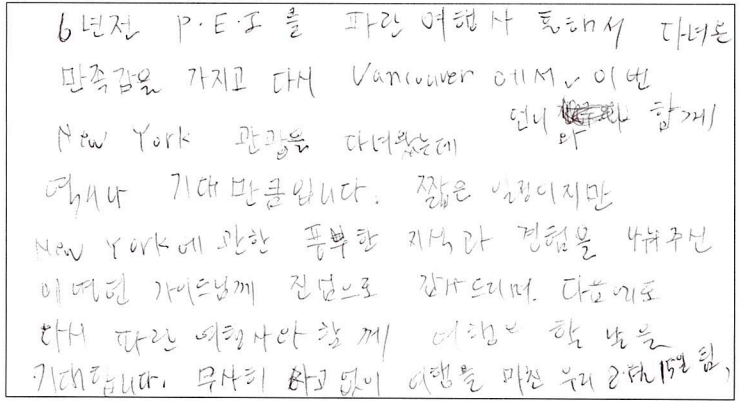 6년전 P.E.I를 파란여행사 통해서 다녀온
만족감을 가지고 다시 Vancouver에서 이번
New York 관광을 다녀왔는데 언니와 함께
역시나 기대만큼입니다. 짧은 일정이지만
New York에 관한 풍부한 지식과 경험을 나눠주신
가이드님께 진심으로 감사드리며. 다음에도
다시 파란여행사와 함께 여행할 날을
기대합니다. 무사히 사고없이 여행을 마친 우리 15일 팀,